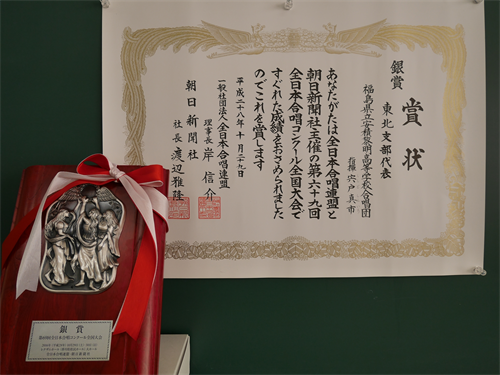 賞状
銀賞
東北支部代表
福島県立安積黎明高等学校合唱団
指揮 宍戸真市
あなたがたは全日本合唱連盟と
朝日新聞社主催の第六十九回
全日本合唱コンクール全国大会で
すぐれた成績をおさめられました
のでこれを賞します
平成二十八年十月二十九日
一般社団法人全日本合唱連盟
理事長 岸信介
朝日新聞社
社長 渡辺雅隆
銀賞